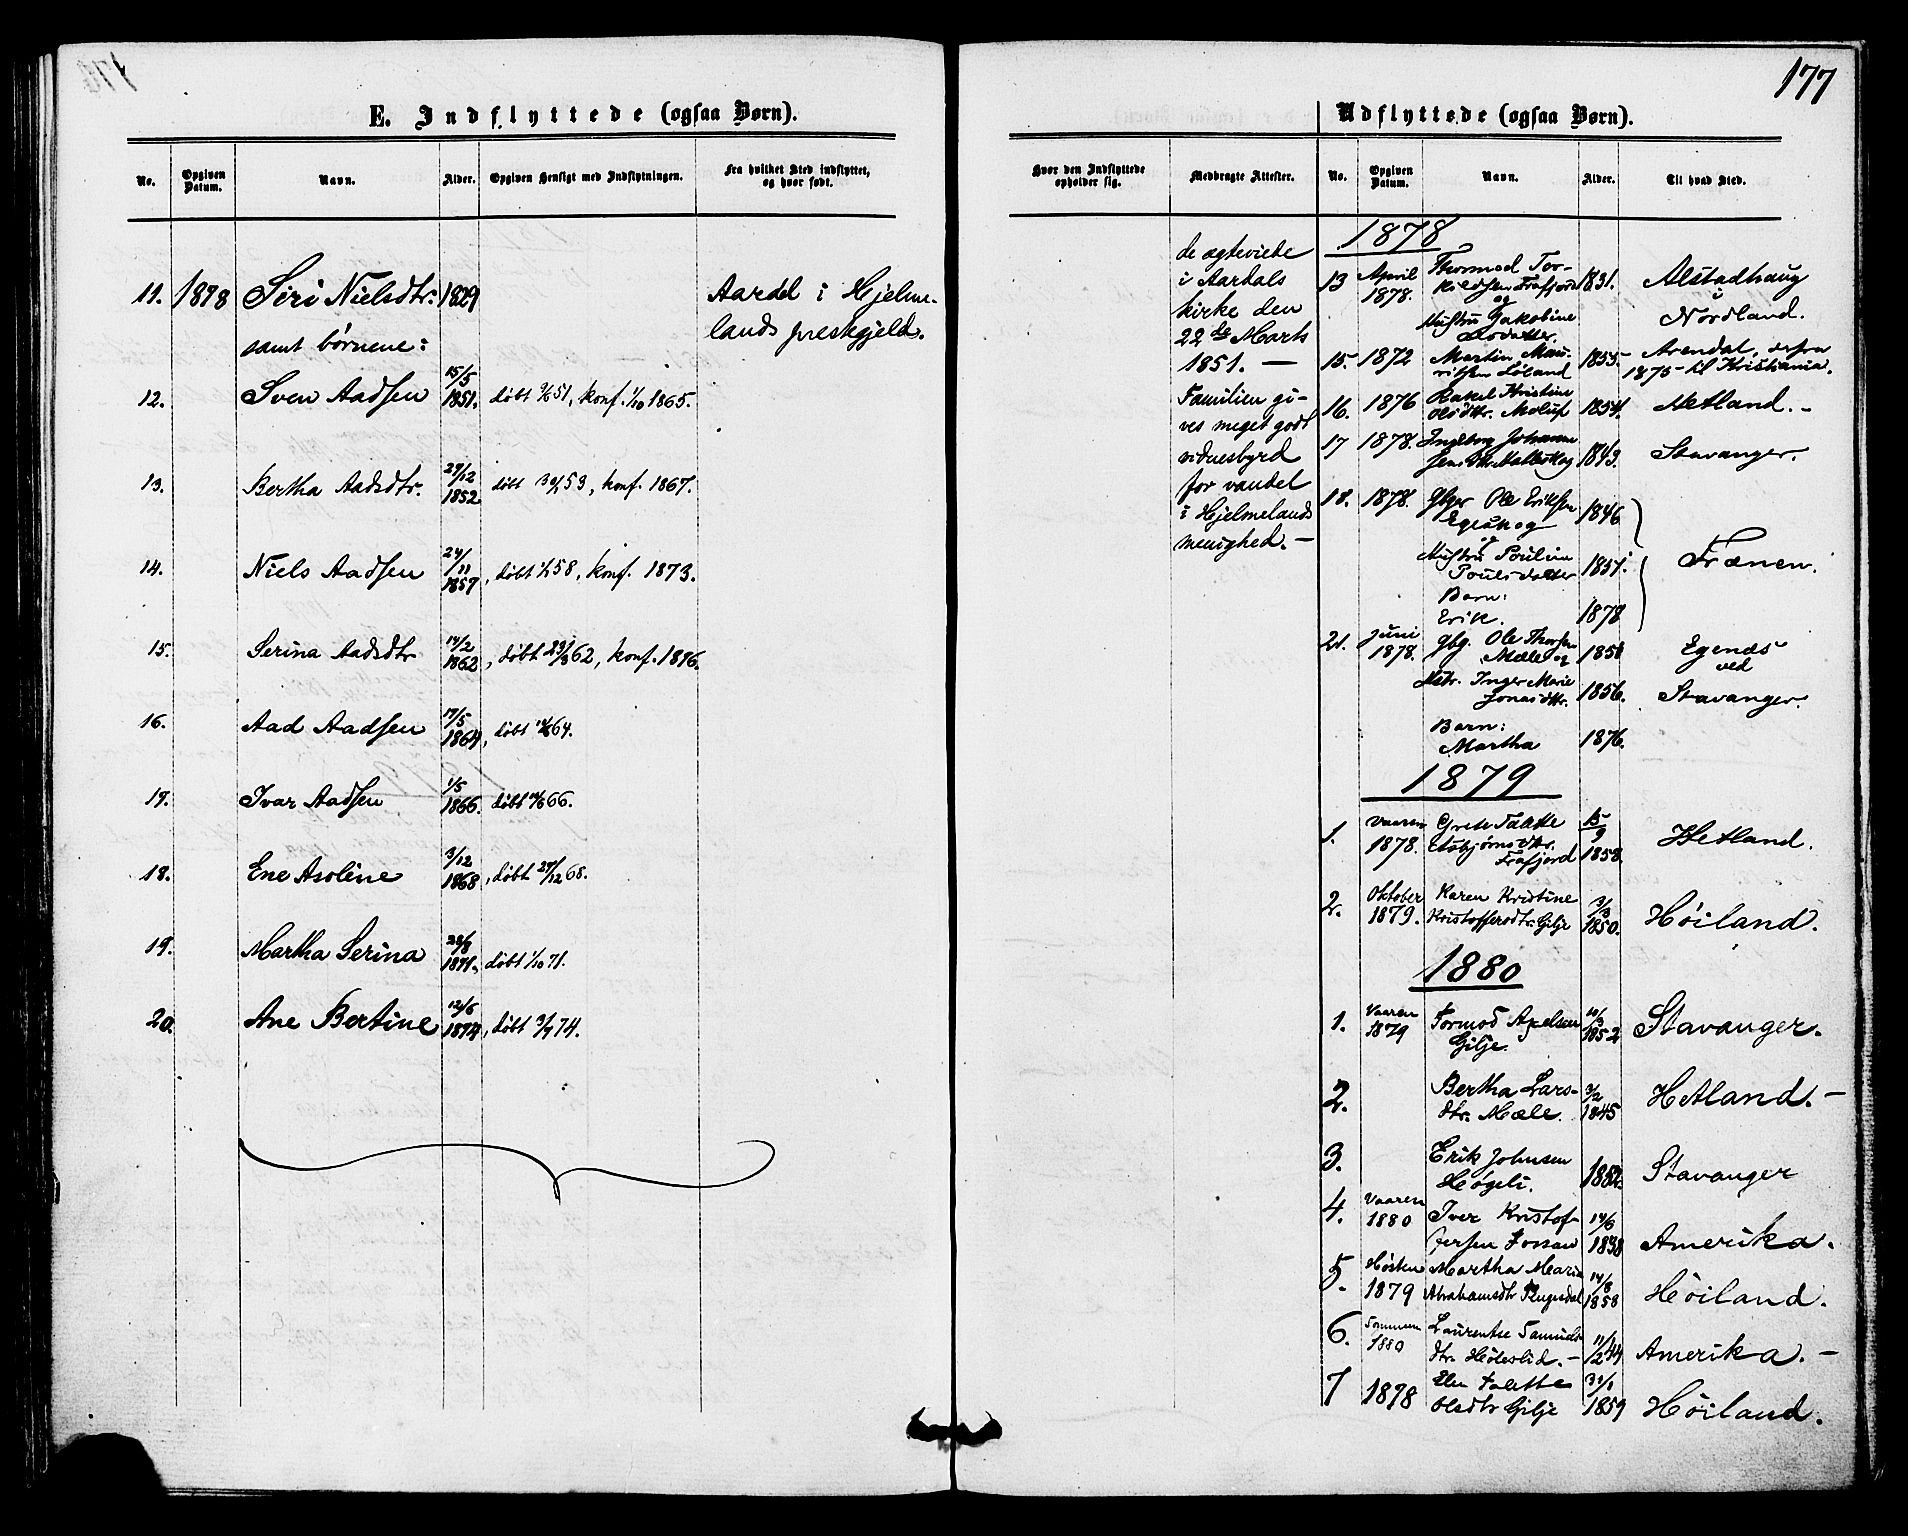 177
E. Indflyttede (ogsaa Børn).
No.
Opgiven Datum.
Navn.
Alder.
Opgiven Hensigt med Indflytningen.
Fra hvilket Sted indflyttet, og hvor født.
11. 1878 Siri Nielsdtr. 1829 Aardal i Hjelme-
samt børnene: lands prestegjeld.
12. Sven Aadsen 15/5 1851. døbt 51, konf. 1/10 1865.
13. Bertha Aadsdtr. 1852 døbt 53, konf. 1867.
14. Niels Aadsen 24/11 1857, døbt 58, konf. 1873.
15. Serina Aadsdtr 14/2 1862, døbt 23/3 62, konf. 1876.
16. Aad Aadsen 17/5 1864, døbt 64.
17. Ivar Aadsen 1/5 1866. døbt 66.
18. Ene Asoline 3/12 1868, døbt 27/12 68.
19. Martha Serina 1871. døbt 1/10 71.
20. Ane Bertine 12/6 1874, døbt 74.
Udflyttede (ogsaa Børn).
Hvor den Indflyttede opholder sig.
Medbragte Attester.
No.
Opgiven Datum.
Navn.
Alder.
Til hvad Sted.
de ægteviede
i Aardals
kirke den
22de Marts
1851. —
Familien gi-
ves meget godt
vidnesbyrd
for vandel
i Hjelmelands
menighed. —
1878
13 April 1878. Thormod Tor-
kildsen Frafjord 1831. Alstadhaug
og i
Hustru Jakobine Nordland.
15. 1872 Martin Mau-
ritsen Løland 1855. Arendal, derfra
1875 til Kristiania.
16. 1876 Rakel Kristine
Olsdtr. Molaug 1854. Hetland. -
17 1878. Ingeborg Johanne
1843. Stavanger.
18. 1878. Gbgr Ole Eriksen
og 1846
Hustru Pouline
Poulsdatter 1851. Frænen.
Barn:
Erik. 1878
21. Juni 1878. Gbg. Ole Thorsen
Mæle og 1851 Egenæs
ved
Hstr. Inger Marie
Jonasdtr. 1856. Stavanger.
Barn:
Martha 1876.
1879
1. Vaaren 1878. Grete Talette
Asbjørnsdtr.
Frafjord 15/9 1858. Hetland.
2. Oktober 1879. Karen Kristine
Kristoffersdtr. Gilje 3/3 1850. Høiland.
1880
1. Vaaren 1879 Tormod Axelsen
Gilje. 1852 Stavanger.
2. Bertha Lars-
dtr. Mæle. 3/2 1845 Hetland. —
3. Erik Johnsen
Høgeli. 1852. Stavanger
4. Vaaren 1880 Iver Kristof-
fersen Fossan 14/6 1838 Amerika.
5. Høsten 1879 Martha Marie
Abrahamsdtr 14/8 1858 Høiland.
6. Sommeren 1880 Laurentse Samuels-
dtr. Høleslid. — 11/2 44 Amerika. —
7 1878 Elen Talette
Olsdtr Gilje 31/1 1859 Høiland.